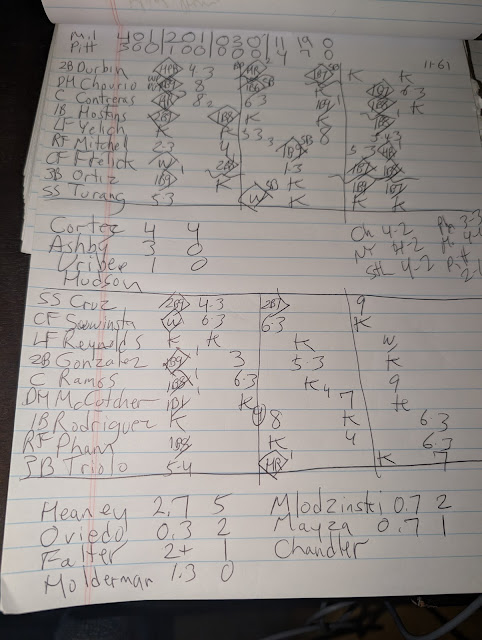 Mil 401 201 030 11 19 0
Pitt 300 100 000 4 7 0
2B Durbin HR 4-3 HR 1B1 K K
DH Chourio 8 8 1B1 K 6 3
C Contreras HR 8 6 3 1B1
1B Hoskins 2B1 1B8 K K
LF Yelich K K 5 3 8 5 4 3
RF Mitchel 2-3 4 1B1 5 3 HR
CF Frelick W 2B K 1-3
3B Ortiz 1B1 K K
SS Turang 5-3 W K K K
11-61
Cortez 4 4
Ashby 3 0
Uribe 1 0
Hudson
Ch 4-2 Ph 3-3
NY 4-2
StL 4-2 Pitt 2-
SS Cruz 2B1 4-3 2B1 9
CF Suwinski W 6-3 6-3 K
LF Reynalds K K K W
2B Gonzalez 1 3 5-3 K
C Ramos 1B8 6-3 K 9
DH McCotcher 1B1 K 4 7 K
1B Rodriguez K 8 K 6-3
RF Pham 1B8 K 4 6-3
3B Triolo 5-4 HR K 7
Heaney 2.7 5 Mlodzinski 0.7 2
Oviedo 0.3 2 Mayza 0.7 1
Falter 2+ 1 Chandler
Holderman 1.3 0